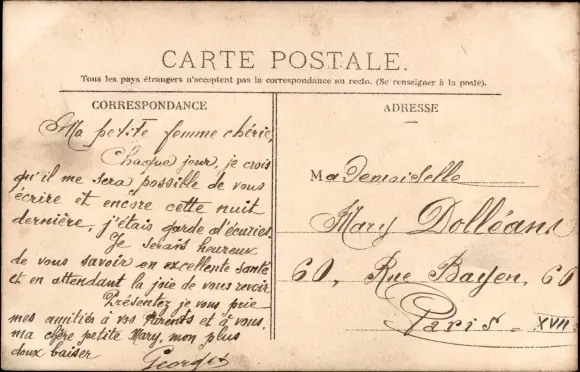 CARTE POSTALE.
Tous les pays étrangers n'acceptent pas la correspondance au recto. (Se renseigner à la poste).
CORRESPONDANCE
Ma petite femme chérie,
Chaque jour, je crois
qu'il me sera possible de vous
écrire et encore cette nuit
dernière, j'étais garde d'écuries.
Je serais heureux
de vous savoir en excellente santé
et en attendant la joie de vous revoir
Présentez je vous prie
mes amitiés à vos Parents et à vous,
ma chère petite Mary, mon plus
doux baiser
Georges
ADRESSE
MaDemoiselle
Mary Dolléans
60, Rue Bayen, 60
Paris - XVII